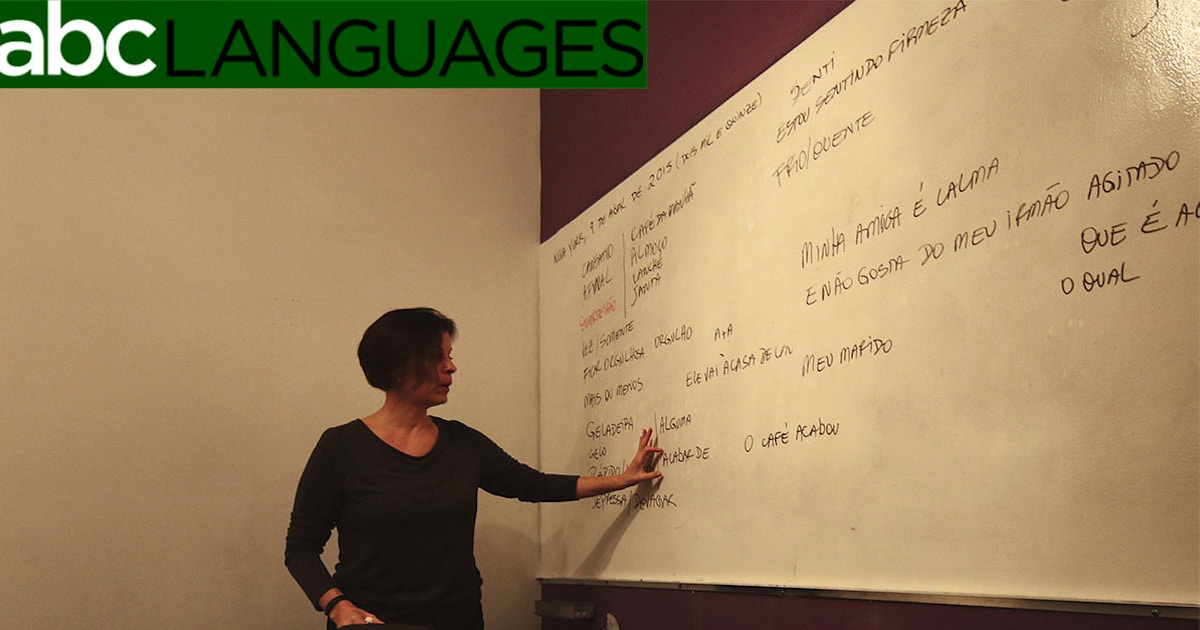 abc LANGUAGES
NOVA YORK, 9 DE ABRIL DE 2015 (DOIS MIL E QUINZE)
CANSADO
AFINAL
CAFÉ DA MANHÃ
ALMOÇO
LANCHE
JANTA
VEZ / SOMENTE
FICAR ORGULHOSA ORGULHO A+A
MAIS OU MENOS
ELE VAI À CASA DE UM
GELADEIRA / ALGUMA
GELO
RÁPIDO/ ACABAR DE O CAFÉ ACABOU
DEPRESSA / DEVAGAR
SENTI
ESTOU SENTINDO FIRMEZA
FRIO/QUENTE
MINHA AMIGA É CALMA
E NÃO GOSTA DO MEU IRMÃO AGITADO
QUE É
O QUAL
MEU MARIDO